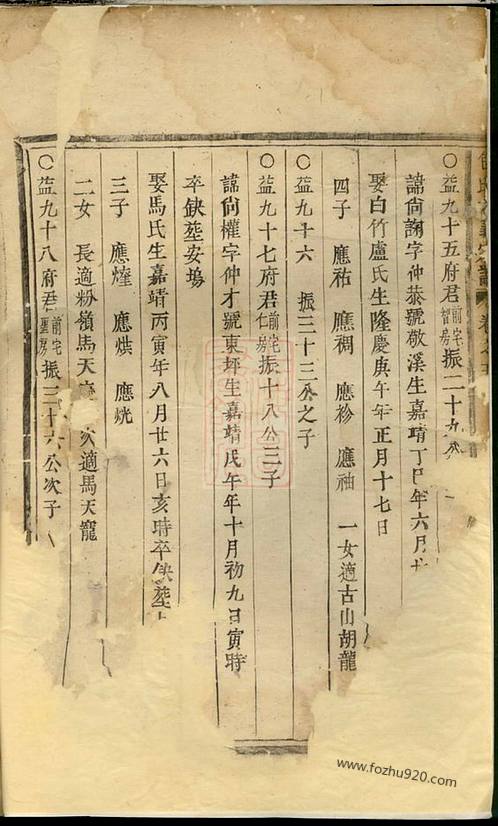 ○益九十五府君前宅智房振二十九公
諱尙詢字仲恭號敬溪生嘉靖丁巳年六月十
娶白竹盧氏生隆慶庚午年正月十七日
四子 應祐 應禂 應衫 應袖 一女適古山胡龍
○益九十六 振三十三公之子
○益九十七府君前宅仁房振十八公三子
諱尙權字仲才號東坪生嘉靖戊午年十月初九日寅時
卒缺塟安塢
娶馬氏生嘉靖丙寅年八月廿六日亥時卒缺塟
三子 應爗 應烘 應烍
二女 長適粉嶺馬天 次適馬天龍
○益九十八府君前宅聖房振三十六公次子
www.fozhu920.com